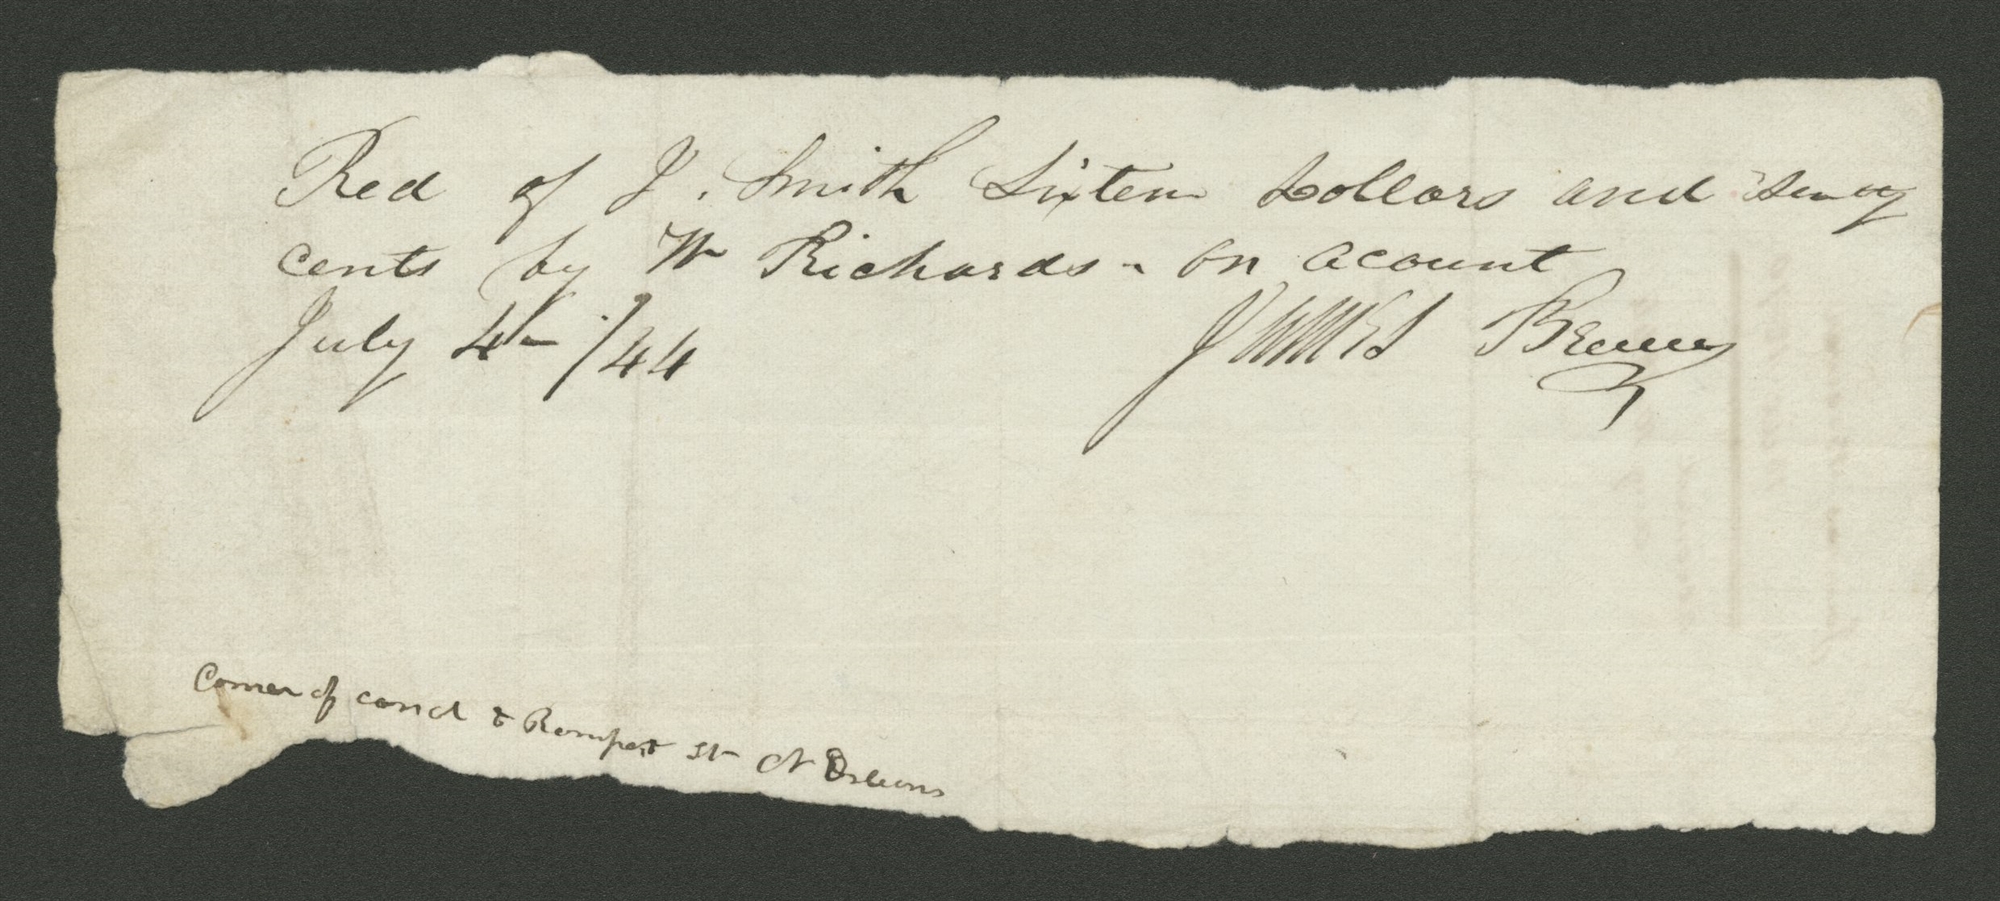 Recd of J. Smith Sixteen Dollars and
cents by Wm Richards - on acount
July 4th /44
James
Corner of canal & Rampart St N Orleans